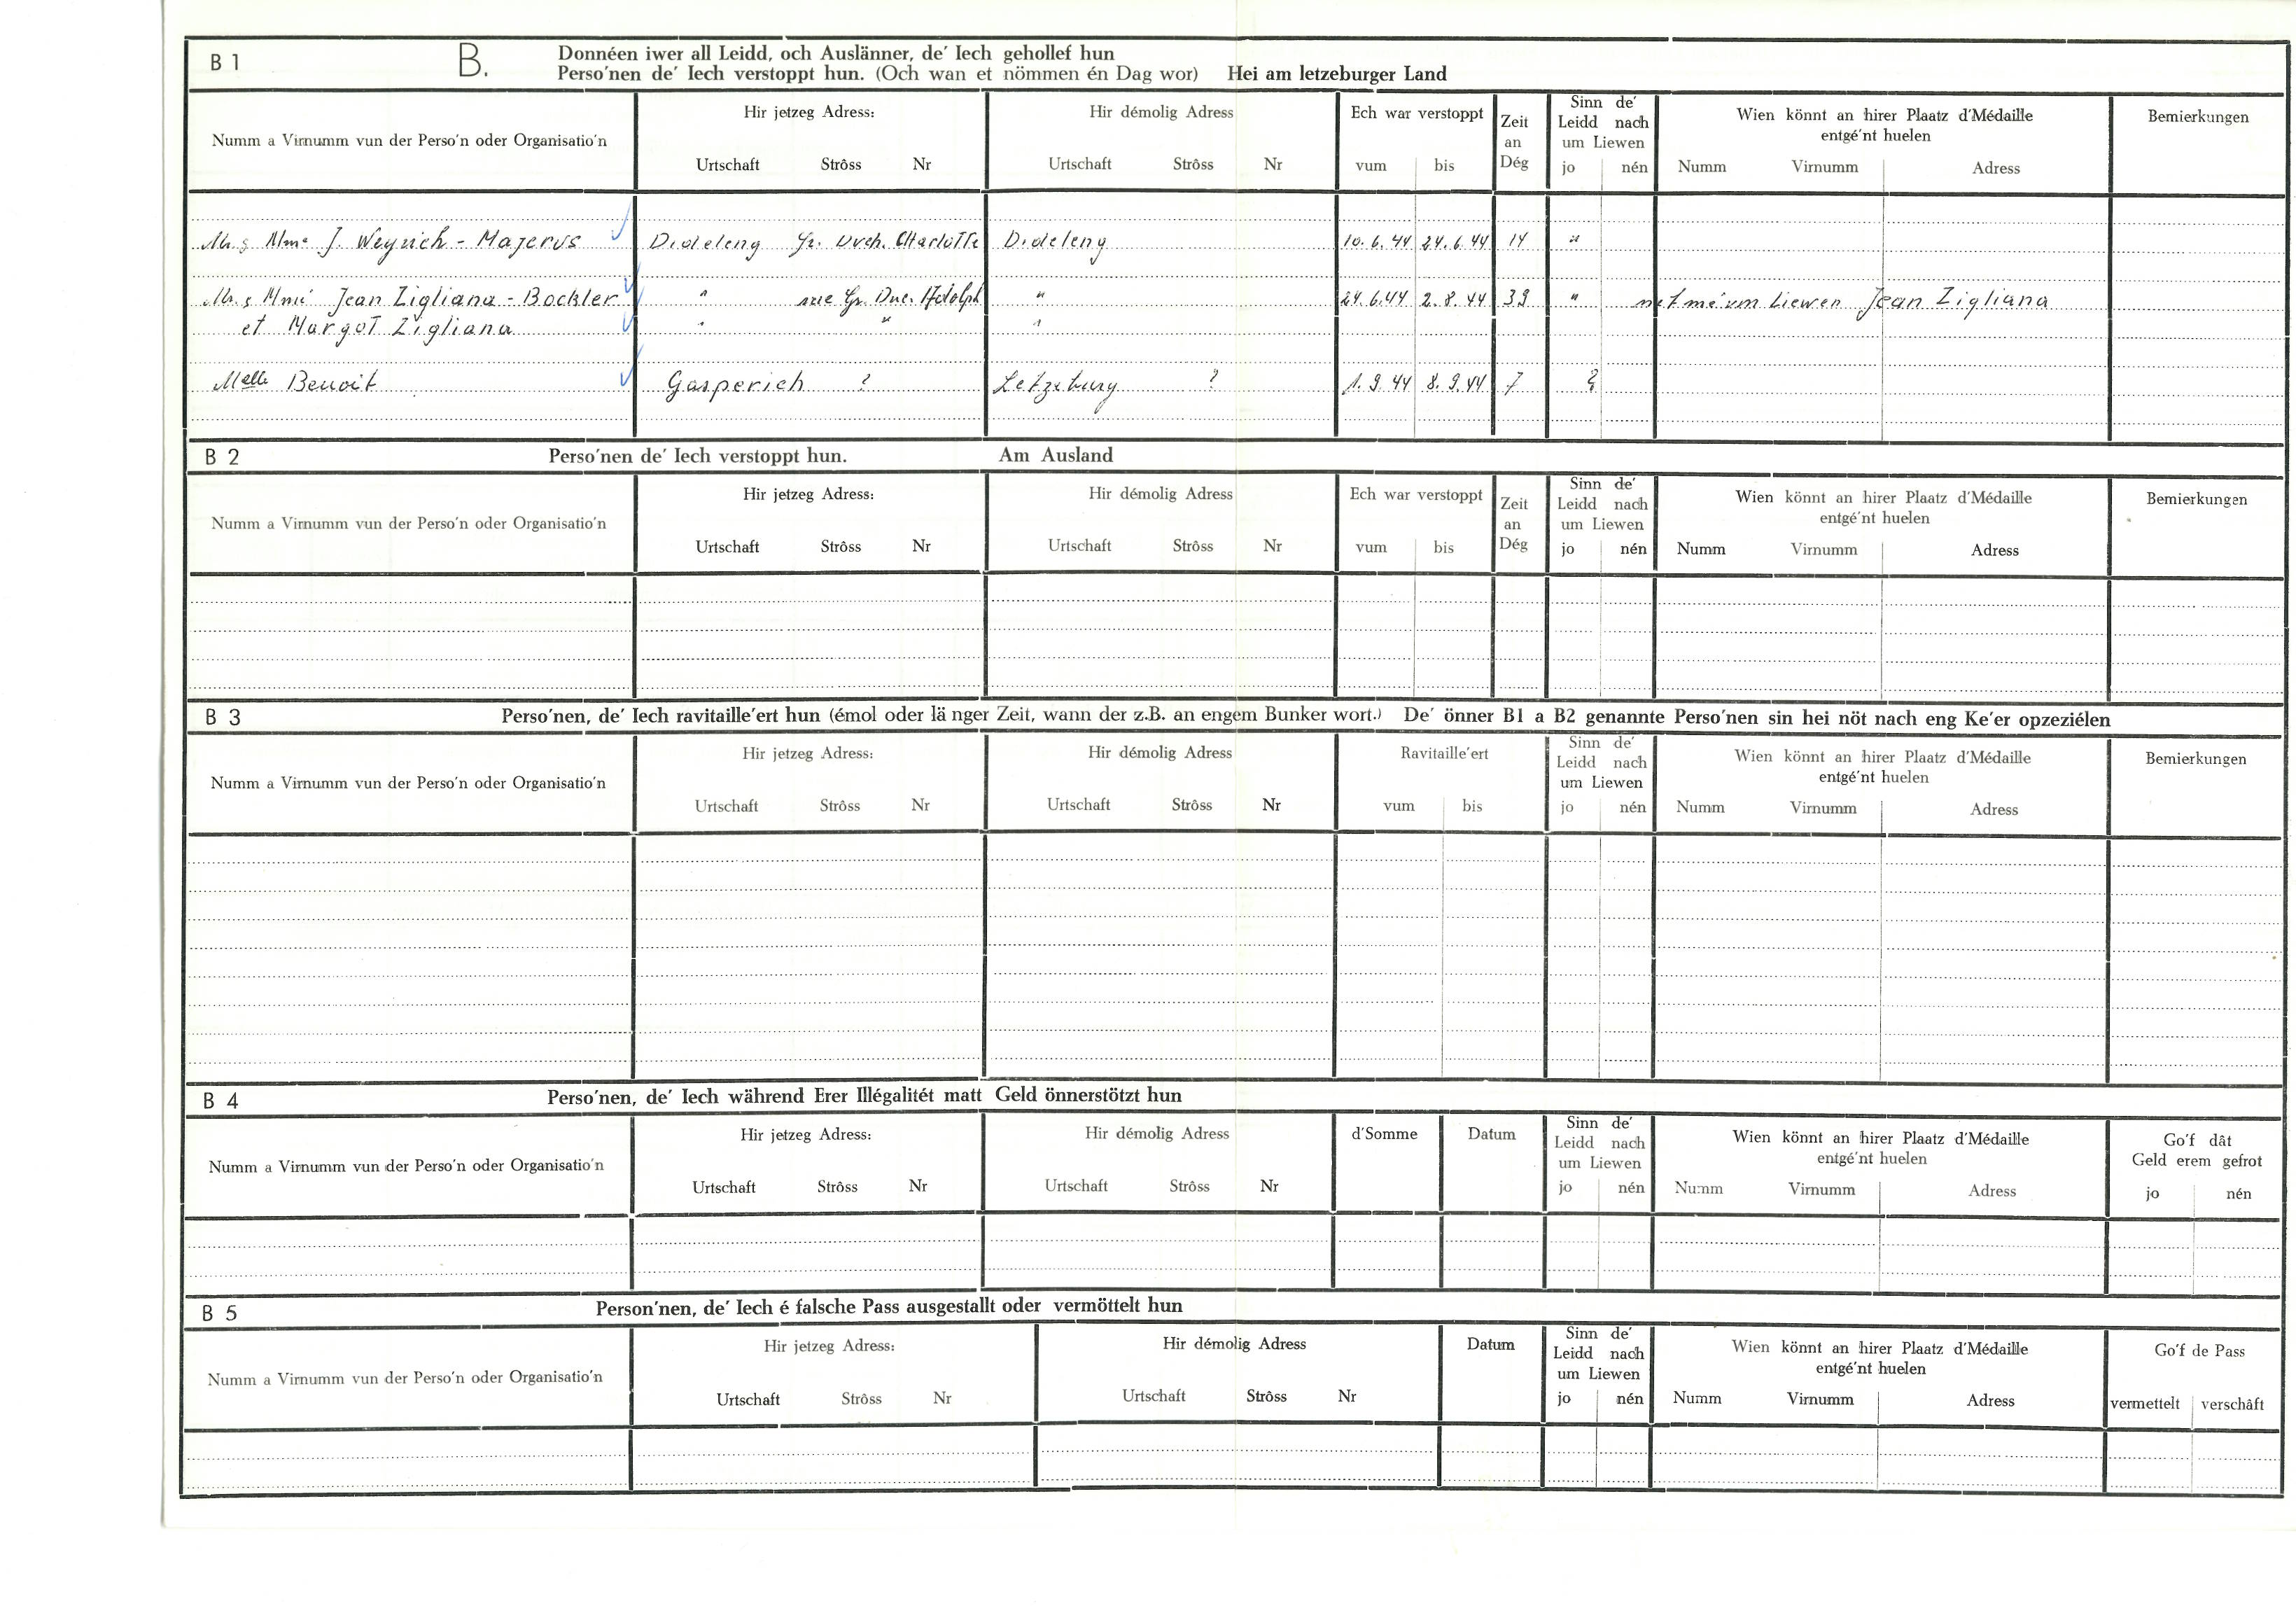 B 1 B. Donnéen iwer all Leidd, och Auslänner, de' Iech gehollef hun
Perso'nen de' Iech verstoppt hun. (Och wan et nömmen én Dag wor) Hei am letzeburger Land
Numm a Virnumm vun der Perso'n oder Organisatio'n
Hir jetzeg Adress:
Urtschaft Strôss Nr
Hir démolig Adress
Urtschaft Strôss Nr
Ech war verstoppt
vum bis
Zeit
an
Dég
Sinn de'
Leidd nach
um Liewen
jo nén
Wien könnt an hirer Plaatz d'Médaille
entgé'nt huelen
Numm Virnumm Adress
Bemierkungen
Mr. & Mme J. Weyrich - Majerus Dideleng Gr. Duch. Charlotte Dideleng 10.6.44 24.6.44 14 "
Mr. & Mme Jean Zigliana - Bockler " rue Gr. Duc. Adolph " 24.6.44 2.8.44 39 " net mé um Liewen Jean Zigliana
et Margot Zigliana " " "
Melle Benoit Gasperich ? Letzeburg ? 1.9.44 8.9.44 7 ?
B 2 Perso'nen de' Iech verstoppt hun. Am Ausland
Numm a Virnumm vun der Perso'n oder Organisatio'n
Hir jetzeg Adress:
Urtschaft Strôss Nr
Hir démolig Adress
Urtschaft Strôss Nr
Ech war verstoppt
vum bis
Zeit
an
Dég
Sinn de'
Leidd nach
um Liewen
jo nén
Wien könnt an hirer Plaatz d'Médaille
entgé'nt huelen
Numm Virnumm Adress
Bemierkungen
B 3 Perso'nen, de' Iech ravitaille'ert hun (émol oder länger Zeit, wann der z.B. an engem Bunker wort.) De' önner B1 a B2 genannte Perso'nen sin hei nöt nach eng Ke'er opzeziélen
Numm a Virnumm vun der Perso'n oder Organisatio'n
Hir jetzeg Adress:
Urtschaft Strôss Nr
Hir démolig Adress
Urtschaft Strôss Nr
Ravitaille'ert
vum bis
Sinn de'
Leidd nach
um Liewen
jo nén
Wien könnt an hirer Plaatz d'Médaille
entgé'nt huelen
Numm Virnumm Adress
Bemierkungen
B 4 Perso'nen, de' Iech während Erer Illégalitét matt Geld önnerstötzt hun
Numm a Virnumm vun der Perso'n oder Organisatio'n
Hir jetzeg Adress:
Urtschaft Strôss Nr
Hir démolig Adress
Urtschaft Strôss Nr
d'Somme
Datum
Sinn de'
Leidd nach
um Liewen
jo nén
Wien könnt an hirer Plaatz d'Médaille
entgé'nt huelen
Numm Virnumm Adress
Go'f dât
Geld erem gefrot
jo nén
B 5 Person'nen, de' Iech é falsche Pass ausgestallt oder vermöttelt hun
Numm a Virnumm vun der Perso'n oder Organisatio'n
Hir jetzeg Adress:
Urtschaft Strôss Nr
Hir démolig Adress
Urtschaft Strôss Nr
Datum
Sinn de'
Leidd nach
um Liewen
jo nén
Wien könnt an hirer Plaatz d'Médaille
entgé'nt huelen
Numm Virnumm Adress
Go'f de Pass
vermettelt verschâft